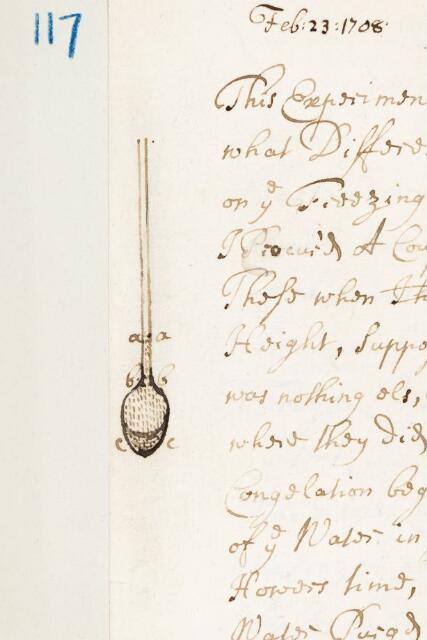 117
Feb: 23: 1708
This Experimen
what Differe
on yͤ Freezing
I Procur'd A Cou
These when th
a a
Height, Suppo
b b
was nothing els,
c c
where they did
Congelation beg
of yͤ Water in
Howers time,
Water Purg'd